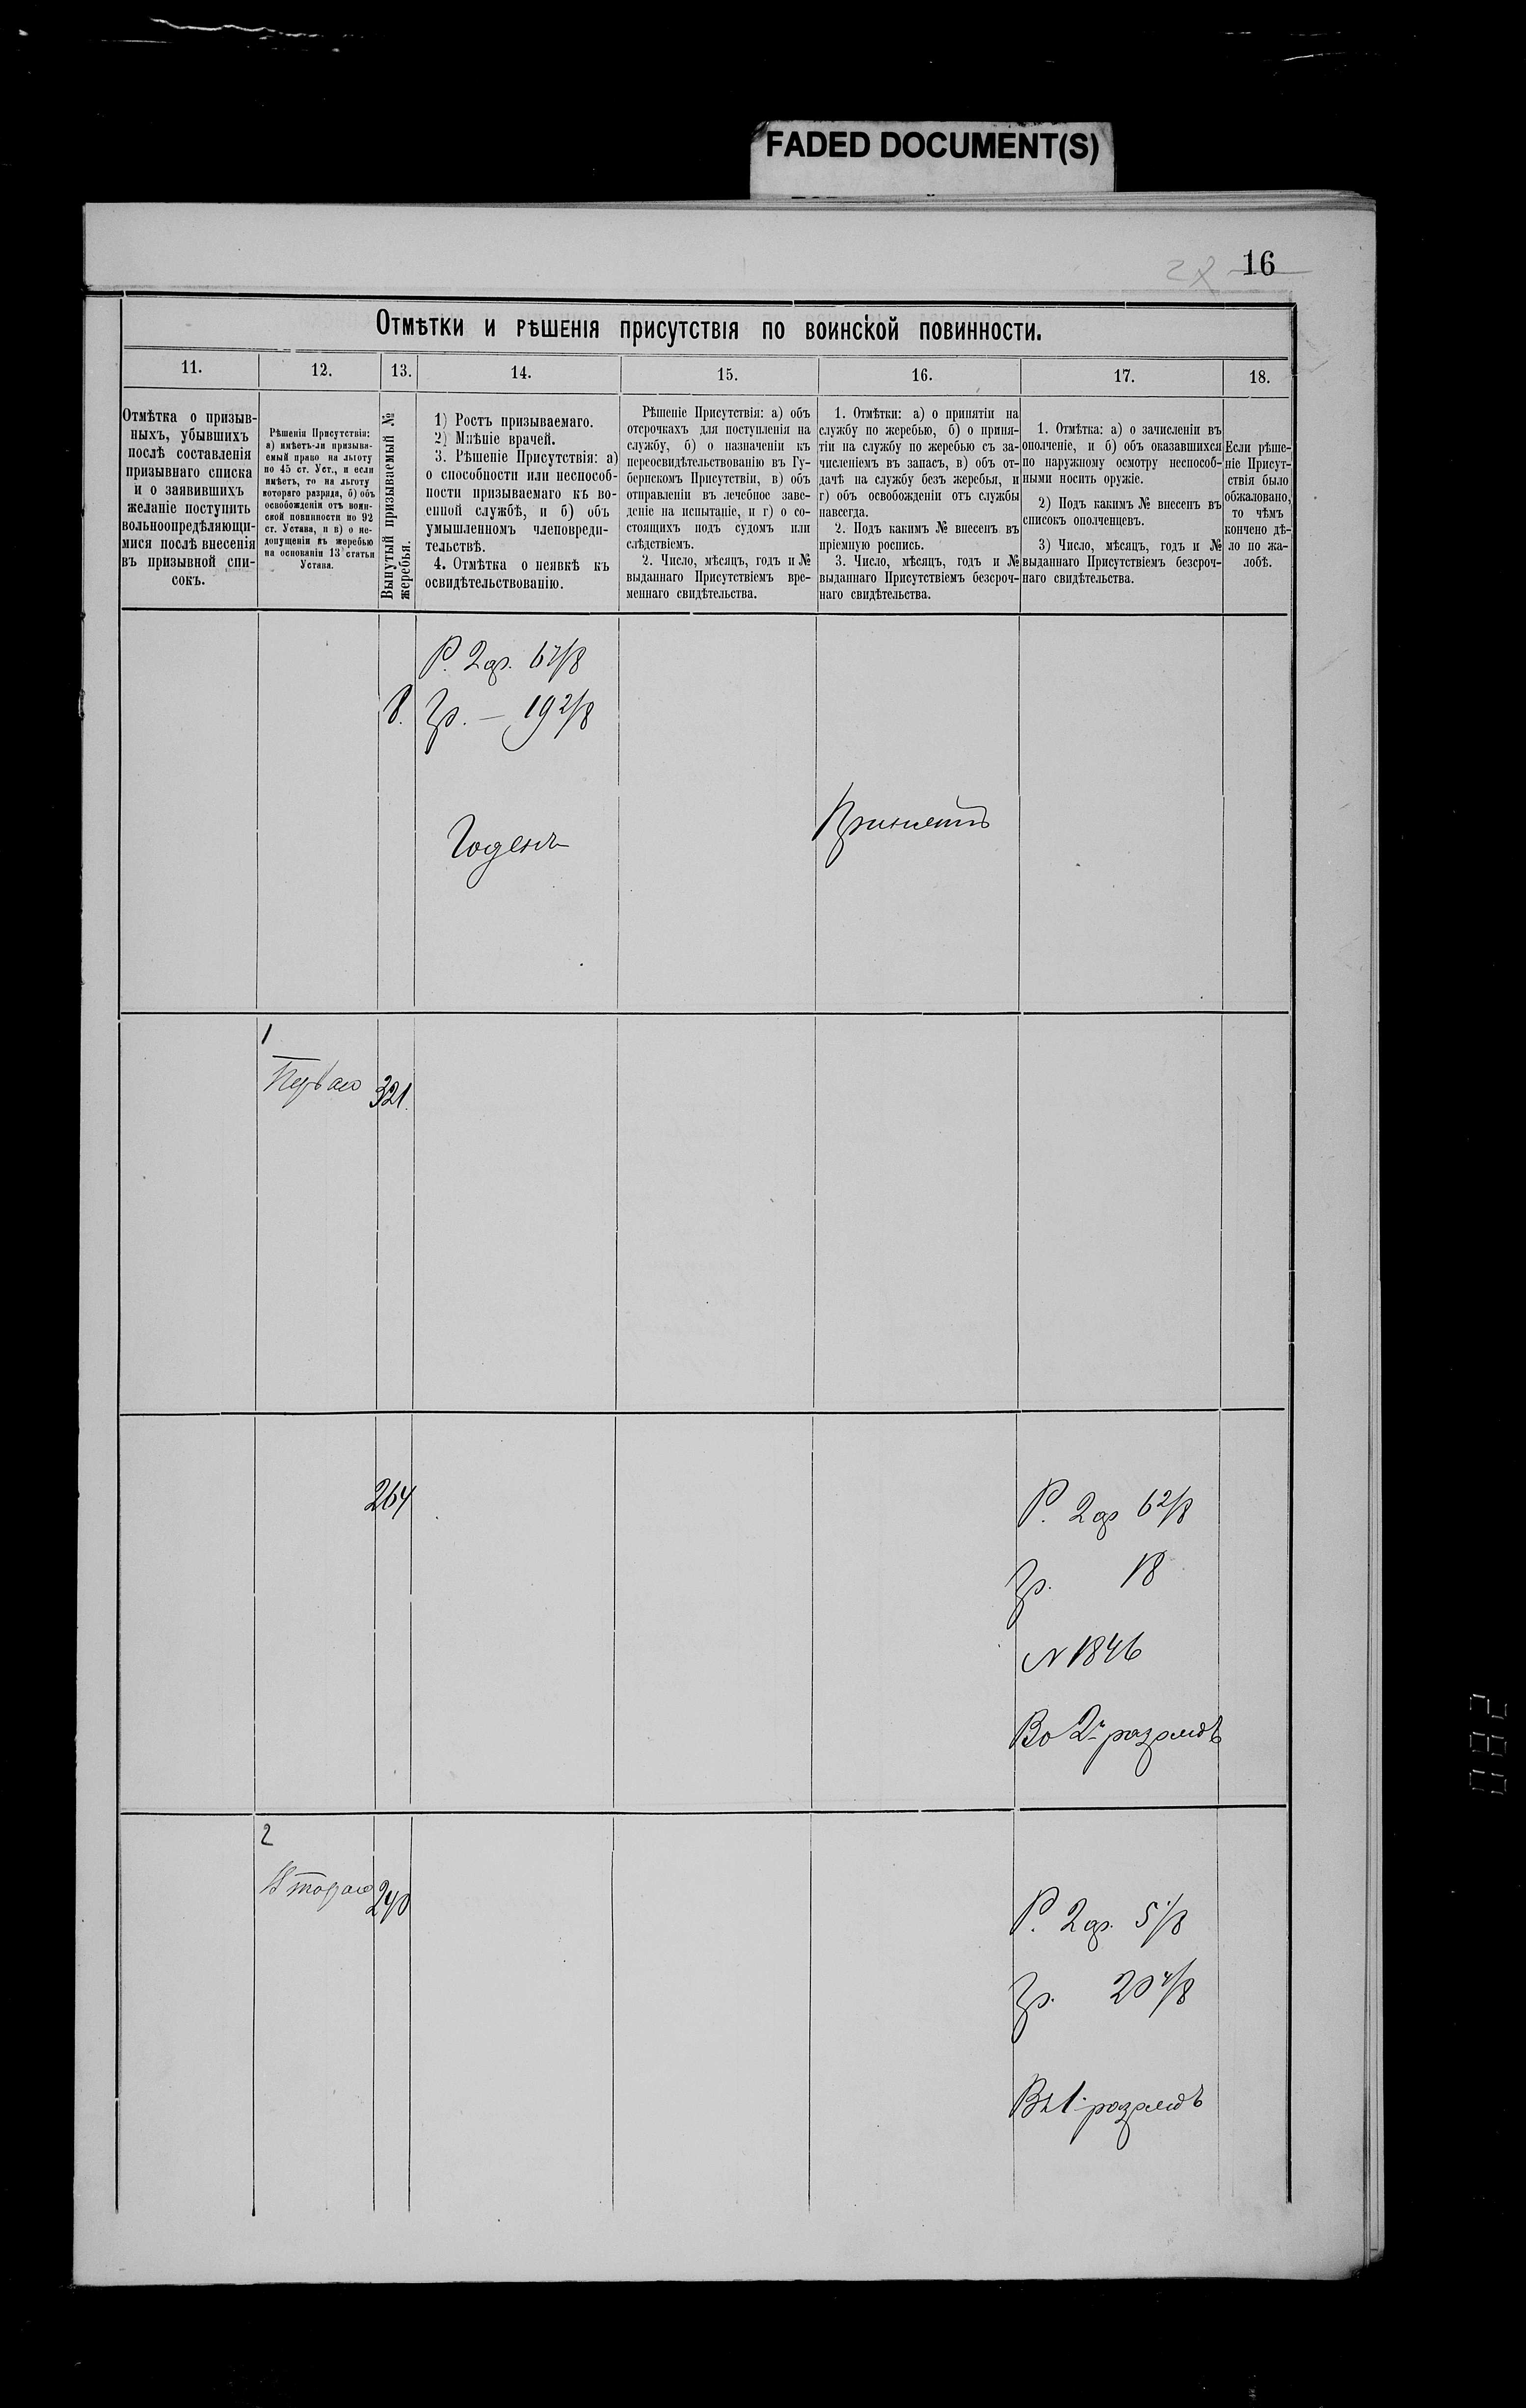 FADED DOCUMENT(S)
16
Отмѣтки и рѣшенія присутствія по воинской повинности.
11.
12.
13.
14.
15.
16.
17.
18.
Отмѣтка о призыв-
ныхъ, убывшихъ
послѣ составленія
призывнаго списка
и о заявившихъ
желаніе поступить
вольноопредѣляющи-
мися послѣ внесенія
въ призывной спи-
сокъ.
Рѣшенія Присутствія:
а) имѣетъ-ли призыва-
емый право на льготу
по 45 ст. Уст., и если
имѣетъ, то на льготу
котораго разряда, б) объ
освобожденіи отъ воин-
ской повинности по 92
ст. Устава, и в) о не-
допущеніи къ жеребью
на основаніи 13 статьи
Устава.
Вынутый призываемый №
жеребья.
1) Ростъ призываемаго.
2) Мнѣніе врачей.
3. Рѣшеніе Присутствія: а)
о способности или неспособ-
ности призываемаго къ во-
енной службѣ, и б) объ
умышленномъ членовреди-
тельствѣ.
4. Отмѣтка о неявкѣ къ
освидѣтельствованію.
Рѣшеніе Присутствія: а) объ
отсрочкахъ для поступленія на
службу, б) о назначеніи къ
переосвидѣтельствованію въ Гу-
бернскомъ Присутствіи, в) объ
отправленіи въ лечебное заве-
деніе на испытаніе, и г) о со-
стоящихъ подъ судомъ или
слѣдствіемъ.
2. Число, мѣсяцъ, годъ и №
выданнаго Присутствіемъ вре-
меннаго свидѣтельства.
1. Отмѣтки: а) о принятіи на
службу по жеребью, б) о приня-
тіи на службу по жеребью съ за-
численіемъ въ запасъ, в) объ от-
дачѣ на службу безъ жеребья, и
г) объ освобожденіи отъ службы
навсегда.
2. Подъ какимъ № внесенъ въ
пріемную роспись.
3. Число, мѣсяцъ, годъ и №
выданнаго Присутствіемъ безсроч-
наго свидѣтельства.
1. Отмѣтка: а) о зачисленіи въ
ополченіе, и б) объ оказавшихся
по наружному осмотру неспособ-
ными носить оружіе.
2) Подъ какимъ № внесенъ въ
списокъ ополченцевъ.
3) Число, мѣсяцъ, годъ и №
выданнаго Присутствіемъ безсроч-
наго свидѣтельства.
Если рѣше-
ніе Присут-
ствія было
обжаловано,
то чѣмъ
кончено дѣ-
ло по жа-
лобѣ.
Р. 2 ар.
8.
Гр. — 19 2/8
Годенъ
Принятъ
1
Перваго
321.
264
Р. 2 ар 6 2/8
Гр. 18
N 1846
Во 2й разрядъ
2
Втораго
240
Р. 2 ар. 5 1/8
Гр. 20 4/8
Въ 1 разрядъ
082